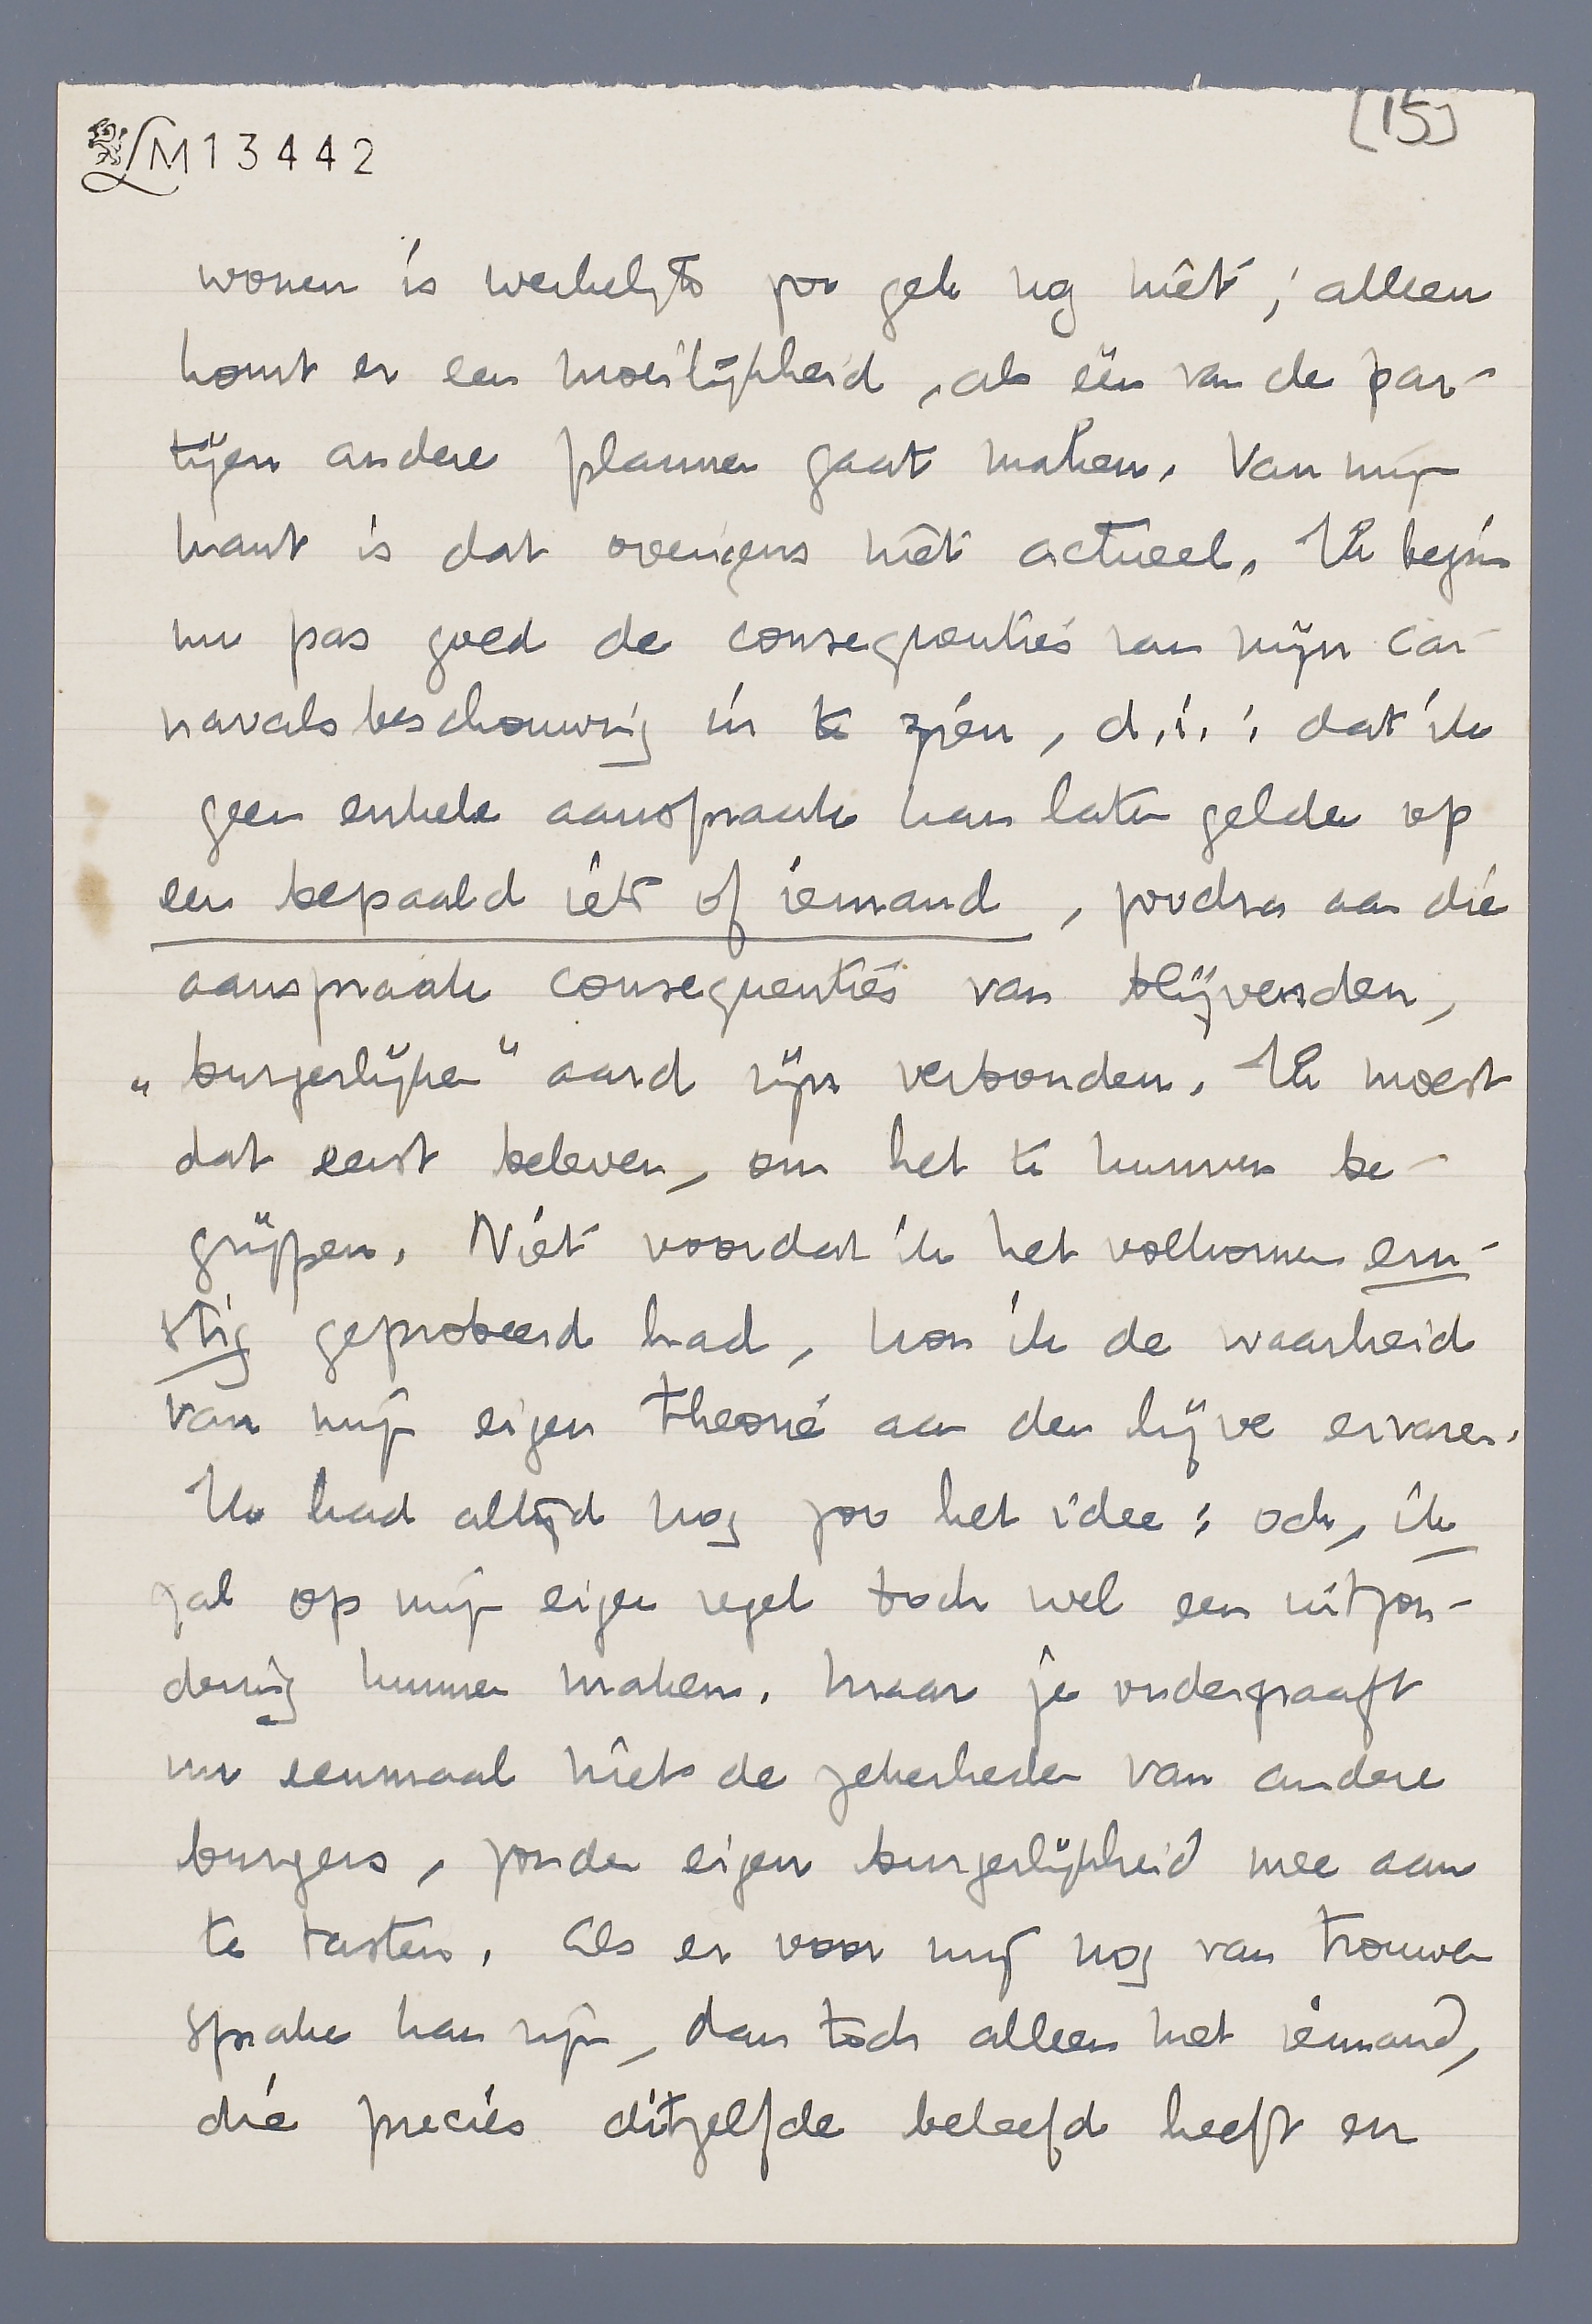 LM13442
[15]
wonen is werkelijk zoo gek nog niet; alleen
komt er een moeilijkheid, als één van de par-
tijen andere plannen gaat maken. Van mijn
kant is dat overigens niet actueel. Ik begin
nu pas goed de consequenties van mijn car-
navalsbeschouwing in te zien, d.i.: dat ik
geen enkele aanspraak kan laten gelden op
een bepaald iets of iemand, zoodra aan die
aanspraak consequenties van blijvenden,
„burgerlijken" aard zijn verbonden. Ik moest
dat eerst beleven, om het te kunnen be-
grijpen. Niet voordat ik het volkomen ern-
stig geprobeerd had, kon ik de waarheid
van mijn eigen theorie aan den lijve ervaren.
Ik had altijd nog zoo het idee: och, ik
zal op mijn eigen regel toch wel een uitzon-
dering kunnen maken. Maar je ondergraaft
nu eenmaal niet de zekerheden van andere
burgers, zonder eigen burgerlijkheid mee aan
te tasten. Als er voor mij nog van trouwen
sprake kan zijn, dan toch alleen met iemand,
die precies ditzelfde beleefd heeft en